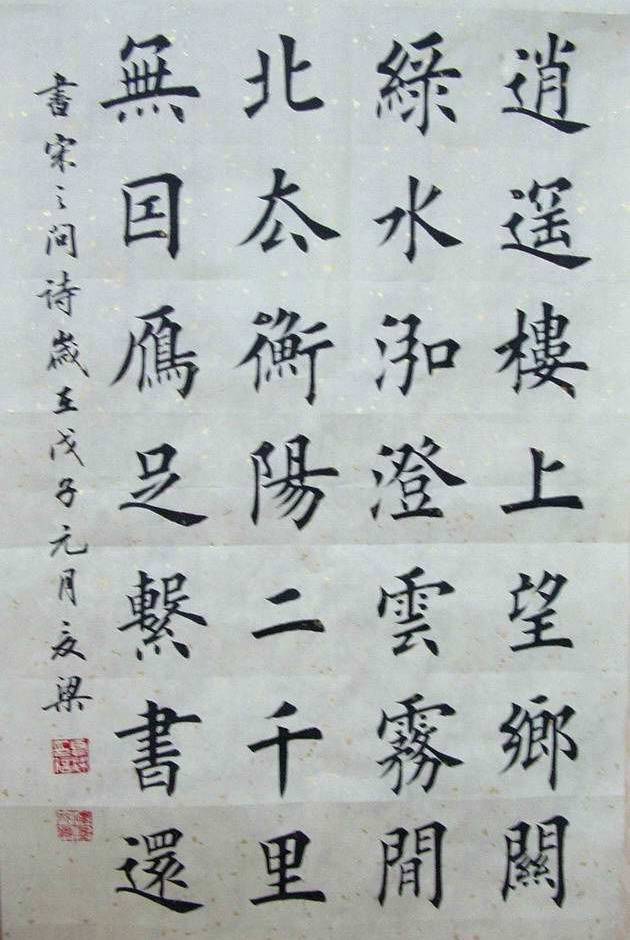 逍遥樓上望鄉關
綠水泓澄雲霧閒
北厺衡陽二千里
無囙鴈足繫書還
書宋之問詩歲在戊子元月友梁